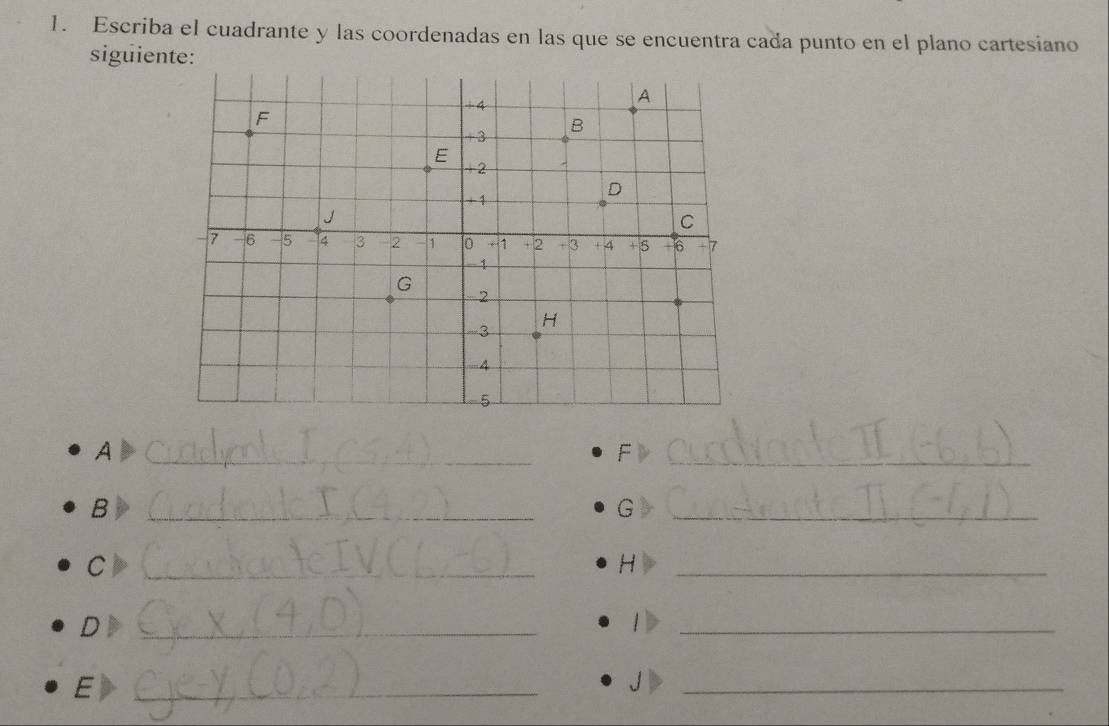 1. Escriba el cuadrante y las coordenadas en las que se encuentra cada punto en el plano cartesiano
siguiente:
A
+4
F
B
+3
E
+2
D
+1
J
C
-7 -6 -5 -4 -3 -2 -1 0 +1 +2 +3 +4 +5 +6 +7
-1
G
-2
H
-3
-4
-5
• A Cuadrante I, (5,4)
• F Cuadrante II, (-6,6)
• B Cuadrante I, (4,2)
• G Cuadrante II, (-1,1)
• C Cuadrante IV, (6,-6)
• H
• D Eje x, (4,0)
• I
• E Eje-y, (0,2)
• J